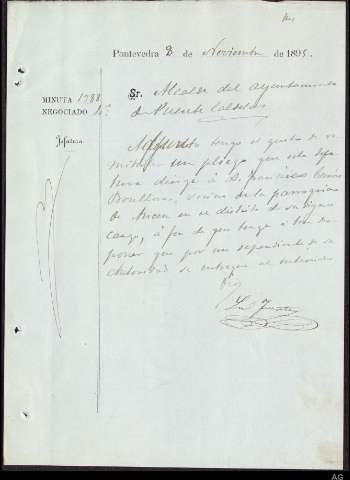 Pontevedra 8 de Noviembre de 1895.
MINUTA 1788
NEGOCIADO
Jefatura.
Sr. Alcalde del Ayuntamiento
de Puente Caldelas
Adjunto tengo el gusto de re
mitir un pliego que esta Jefa
tura dirige á D. Francisco
vecino de la parroquia
de en el distrito de su digno
cargo, á fin de que tenga á bien dis
poner que por un dependiente de su
Autoridad se entregue al interesado
AG